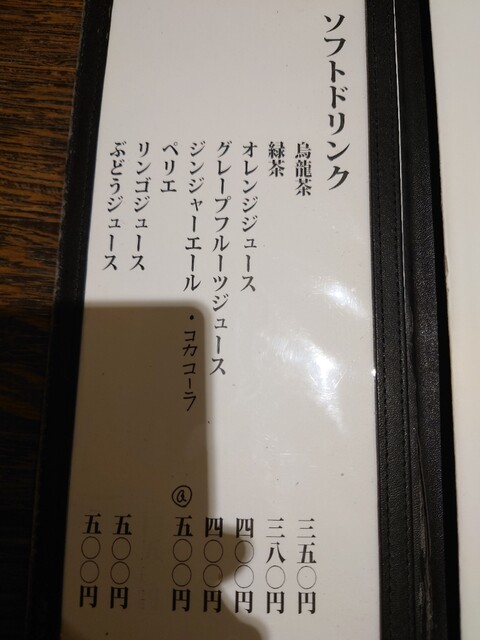 ソフトドリンク
烏龍茶 三五〇円
緑茶 三八〇円
オレンジジュース 四〇〇円
グレープフルーツジュース 四〇〇円
ジンジャーエール ・コカコーラ @ 五〇〇円
ペリエ
リンゴジュース 五〇〇円
ぶどうジュース 五〇〇円